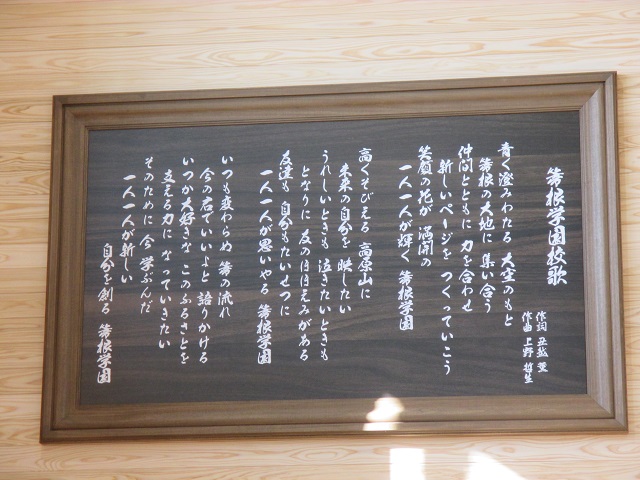 箒根学園校歌
作詞
作曲 上野 哲生
青く澄みわたる 大空のもと
箒根の大地に 集い合う
仲間とともに 力を合わせ
新しいページを つくっていこう
笑顔の花が 満開の
一人一人が輝く 箒根学園
高くそびえる 高原山に
未来の自分を 映したい
うれしいときも 泣きたいときも
となりに 友のほほえみがある
友達も 自分もたいせつに
一人一人が思いやる 箒根学園
いつも変わらぬ 箒の流れ
今の君でいいよと 語りかける
いつか大好きな このふるさとを
支える力に なっていきたい
そのために 今 学ぶんだ
一人一人が新しい
自分を創る 箒根学園